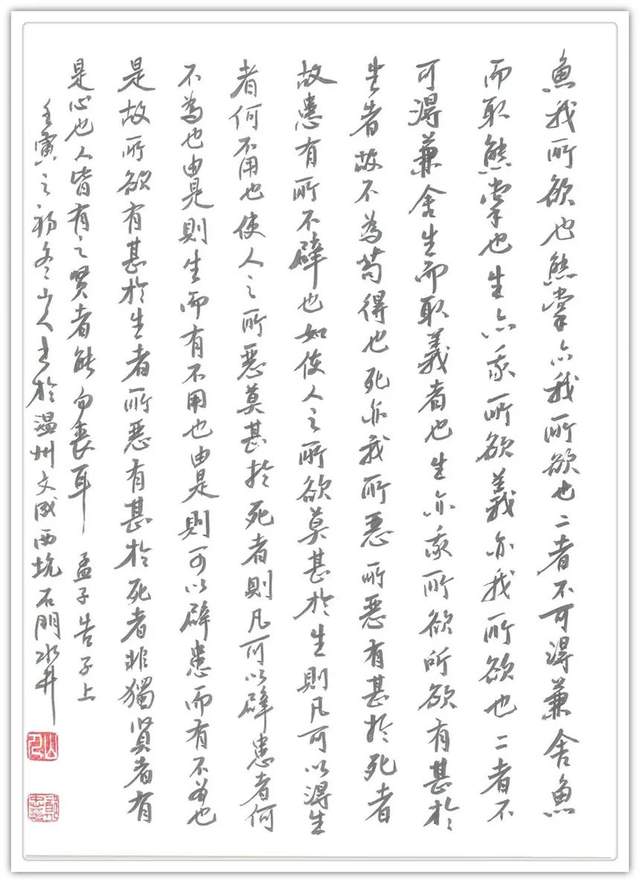 魚我所欲也熊掌亦我所欲也二者不可得兼舍魚
而取熊掌也生亦我所欲義亦我所欲也二者不
可得兼舍生而取義者也生亦我所欲所欲有甚於
生者故不為苟得也死亦我所惡所惡有甚於死者
故患有所不辟也如使人之所欲莫甚於生則凡可以得生
者何不用也使人之所惡莫甚於死者則凡可以辟患者何
不為也由是則生而有不用也由是則可以辟患而有不為也
是故所欲有甚於生者所惡有甚於死者非獨賢者有
是心也人皆有之賢者能勿喪耳 孟子告子上
壬寅之初冬山人书於温州文成西坑石門水井